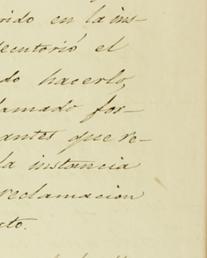 rido en la ins-
ecutorió el
do hacerlo,
lamado for-
antes que re-
la instancia
reclamacion
to.